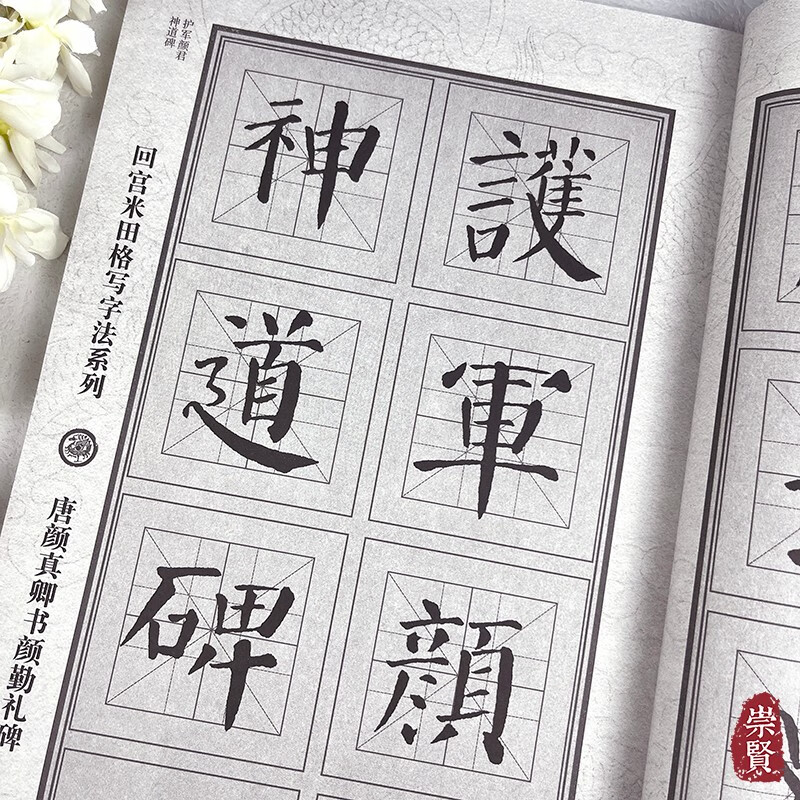 护军颜君
神道碑
回宫米田格写字法系列
唐颜真卿书颜勤礼碑
護軍顏
神道碑
崇賢